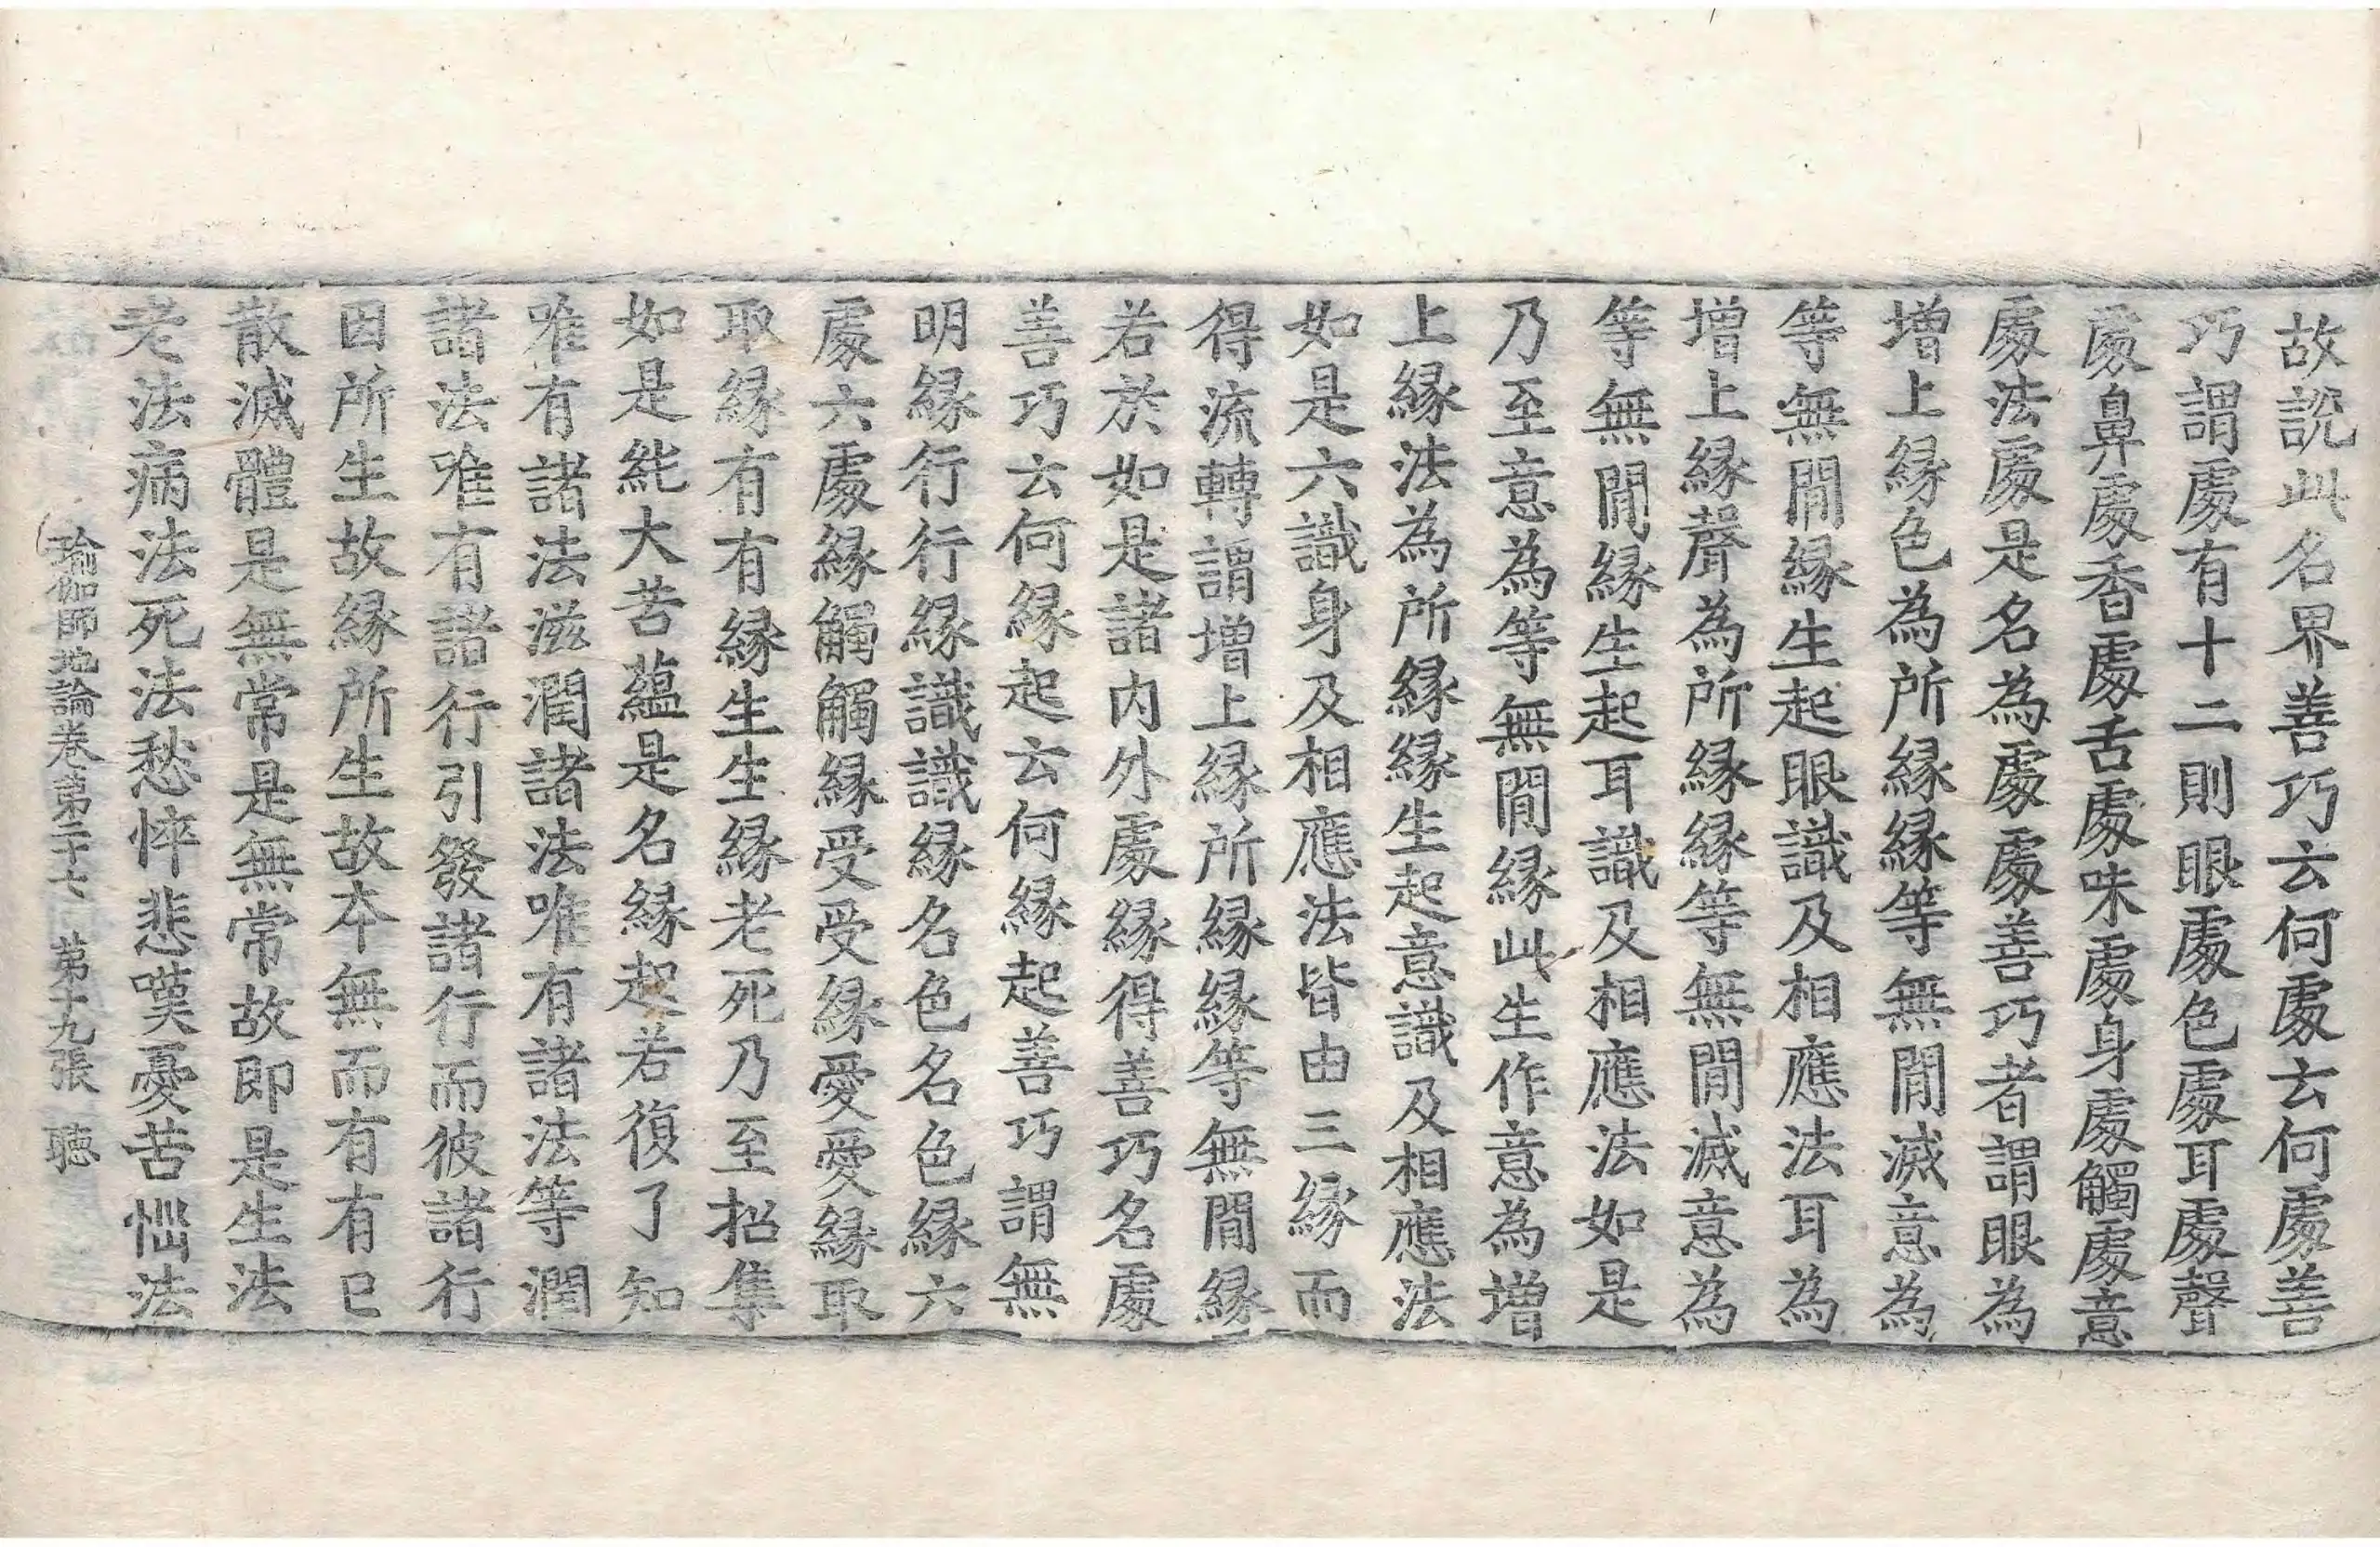 故說此名界善巧云何處云何處善
巧謂處有十二則眼處色處耳處聲
處鼻處香處舌處味處身處觸處意
處法處是名為處處善巧者謂眼為
增上緣色為所緣緣等無間滅意為
等無間緣生起眼識及相應法耳為
增上緣聲為所緣緣等無間滅意為
等無間緣生起耳識及相應法如是
乃至意為等無間緣此生作意為增
上緣法為所緣緣生起意識及相應法
如是六識身及相應法皆由三緣而
得流轉謂增上緣所緣緣等無間緣
若於如是諸內外處緣得善巧名處
善巧云何緣起云何緣起善巧謂無
明緣行行緣識識緣名色名色緣六
處六處緣觸觸緣受受緣愛愛緣取
取緣有有緣生生緣老死乃至招集
如是純大苦蘊是名緣起若復了知
唯有諸法滋潤諸法唯有諸法等潤
諸法唯有諸行引發諸行而彼諸行
因所生故緣所生故本無而有有已
散滅體是無常是無常故即是生法
老法病法死法愁悴悲嘆憂苦惱法
瑜伽師地論卷第二十七 第十九張 聴